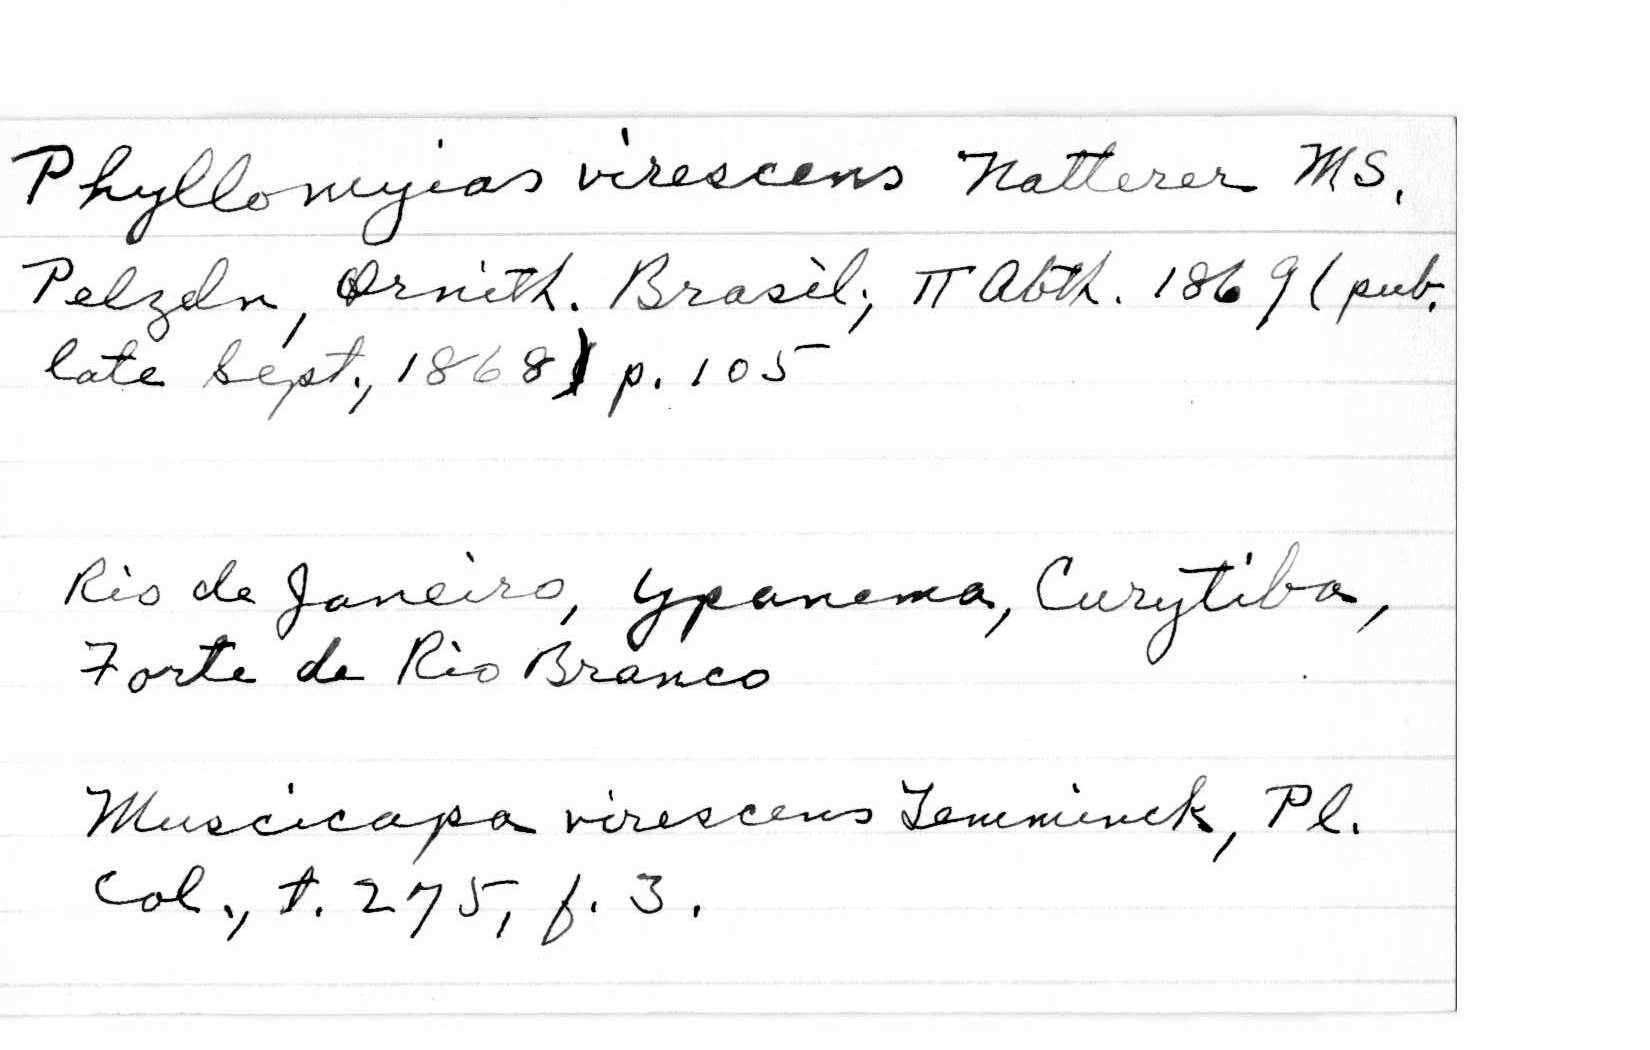 Phyllomyias virescens Natterer MS.
Pelzeln, Ornith. Brasil., II Abth. 1869 (pub.
late Sept., 1868) p. 105
Rio de Janeiro, Ypanema, Curytiba,
Forte de Rio Branco
Muscicapa virescens Temminck, Pl.
Col., t. 275, f. 3.